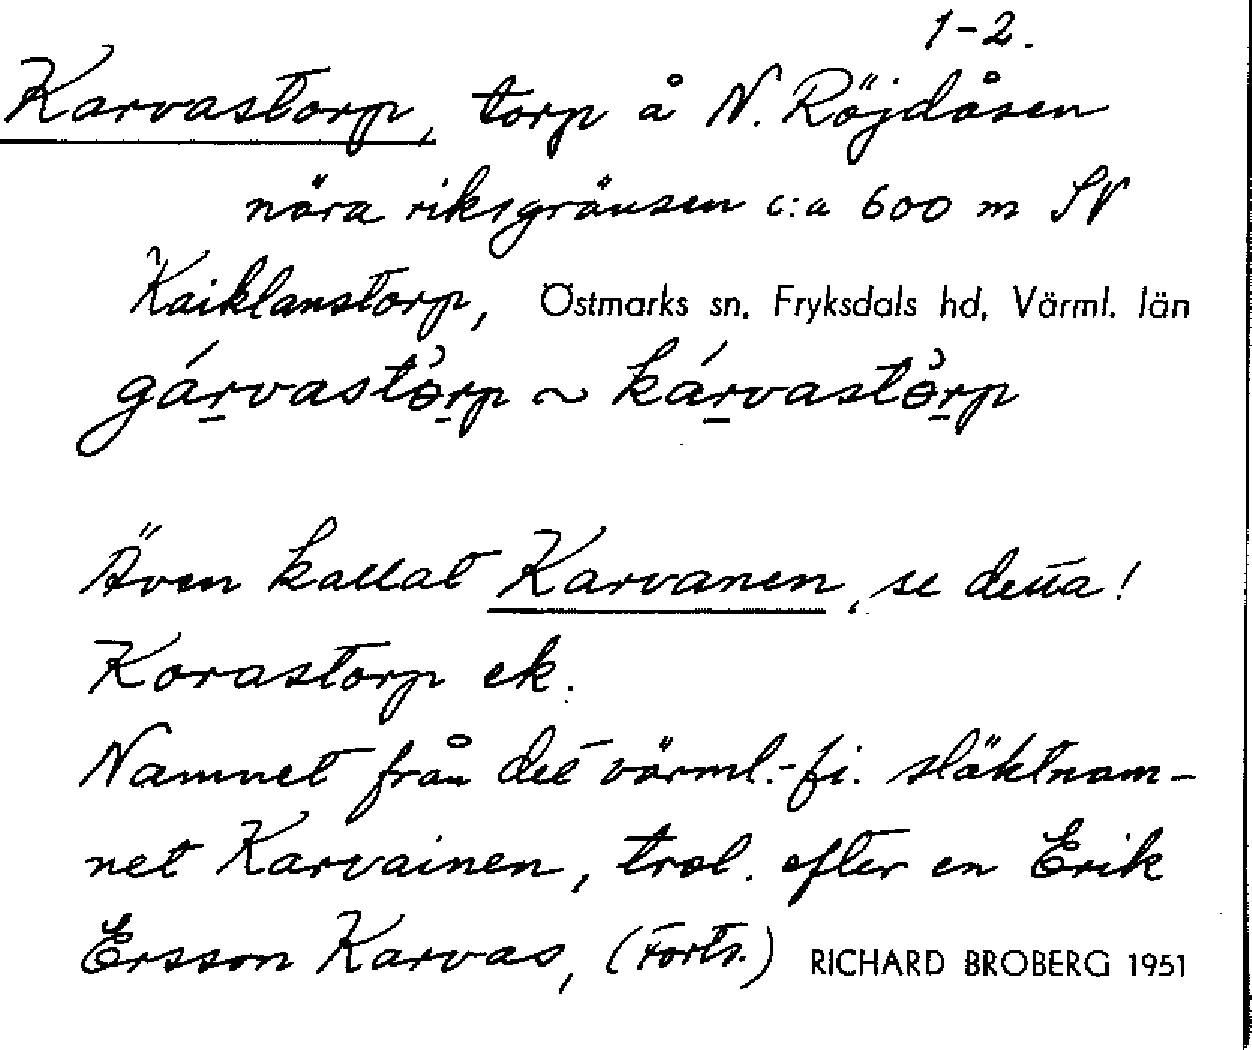 1-2.
Karvastorp, torp å N. Röjdåsen
nära riksgränsen c:a 600 m SV
Kaiklanstorp, Östmarks sn. Fryksdals hd, Värml. län
gárvastòrp ~ kárvastòrp
Även kallat Karvanen, se detta!
Korastorp ek.
Namnet från det värml.-fi. släktnam-
net Karvainen, trol. efter en Erik
Ersson Karvas, (Forts.) RICHARD BROBERG 1951